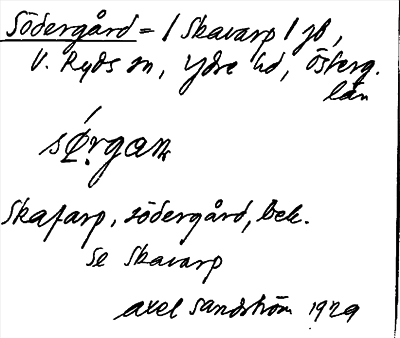 Södergård = / Skavarp / jb,
V. Ryds sn, Ydre hd, Österg.
län
sǿrgan
Skafarp, södergård, bek.
Se Skavarp
Axel Sandström 1929